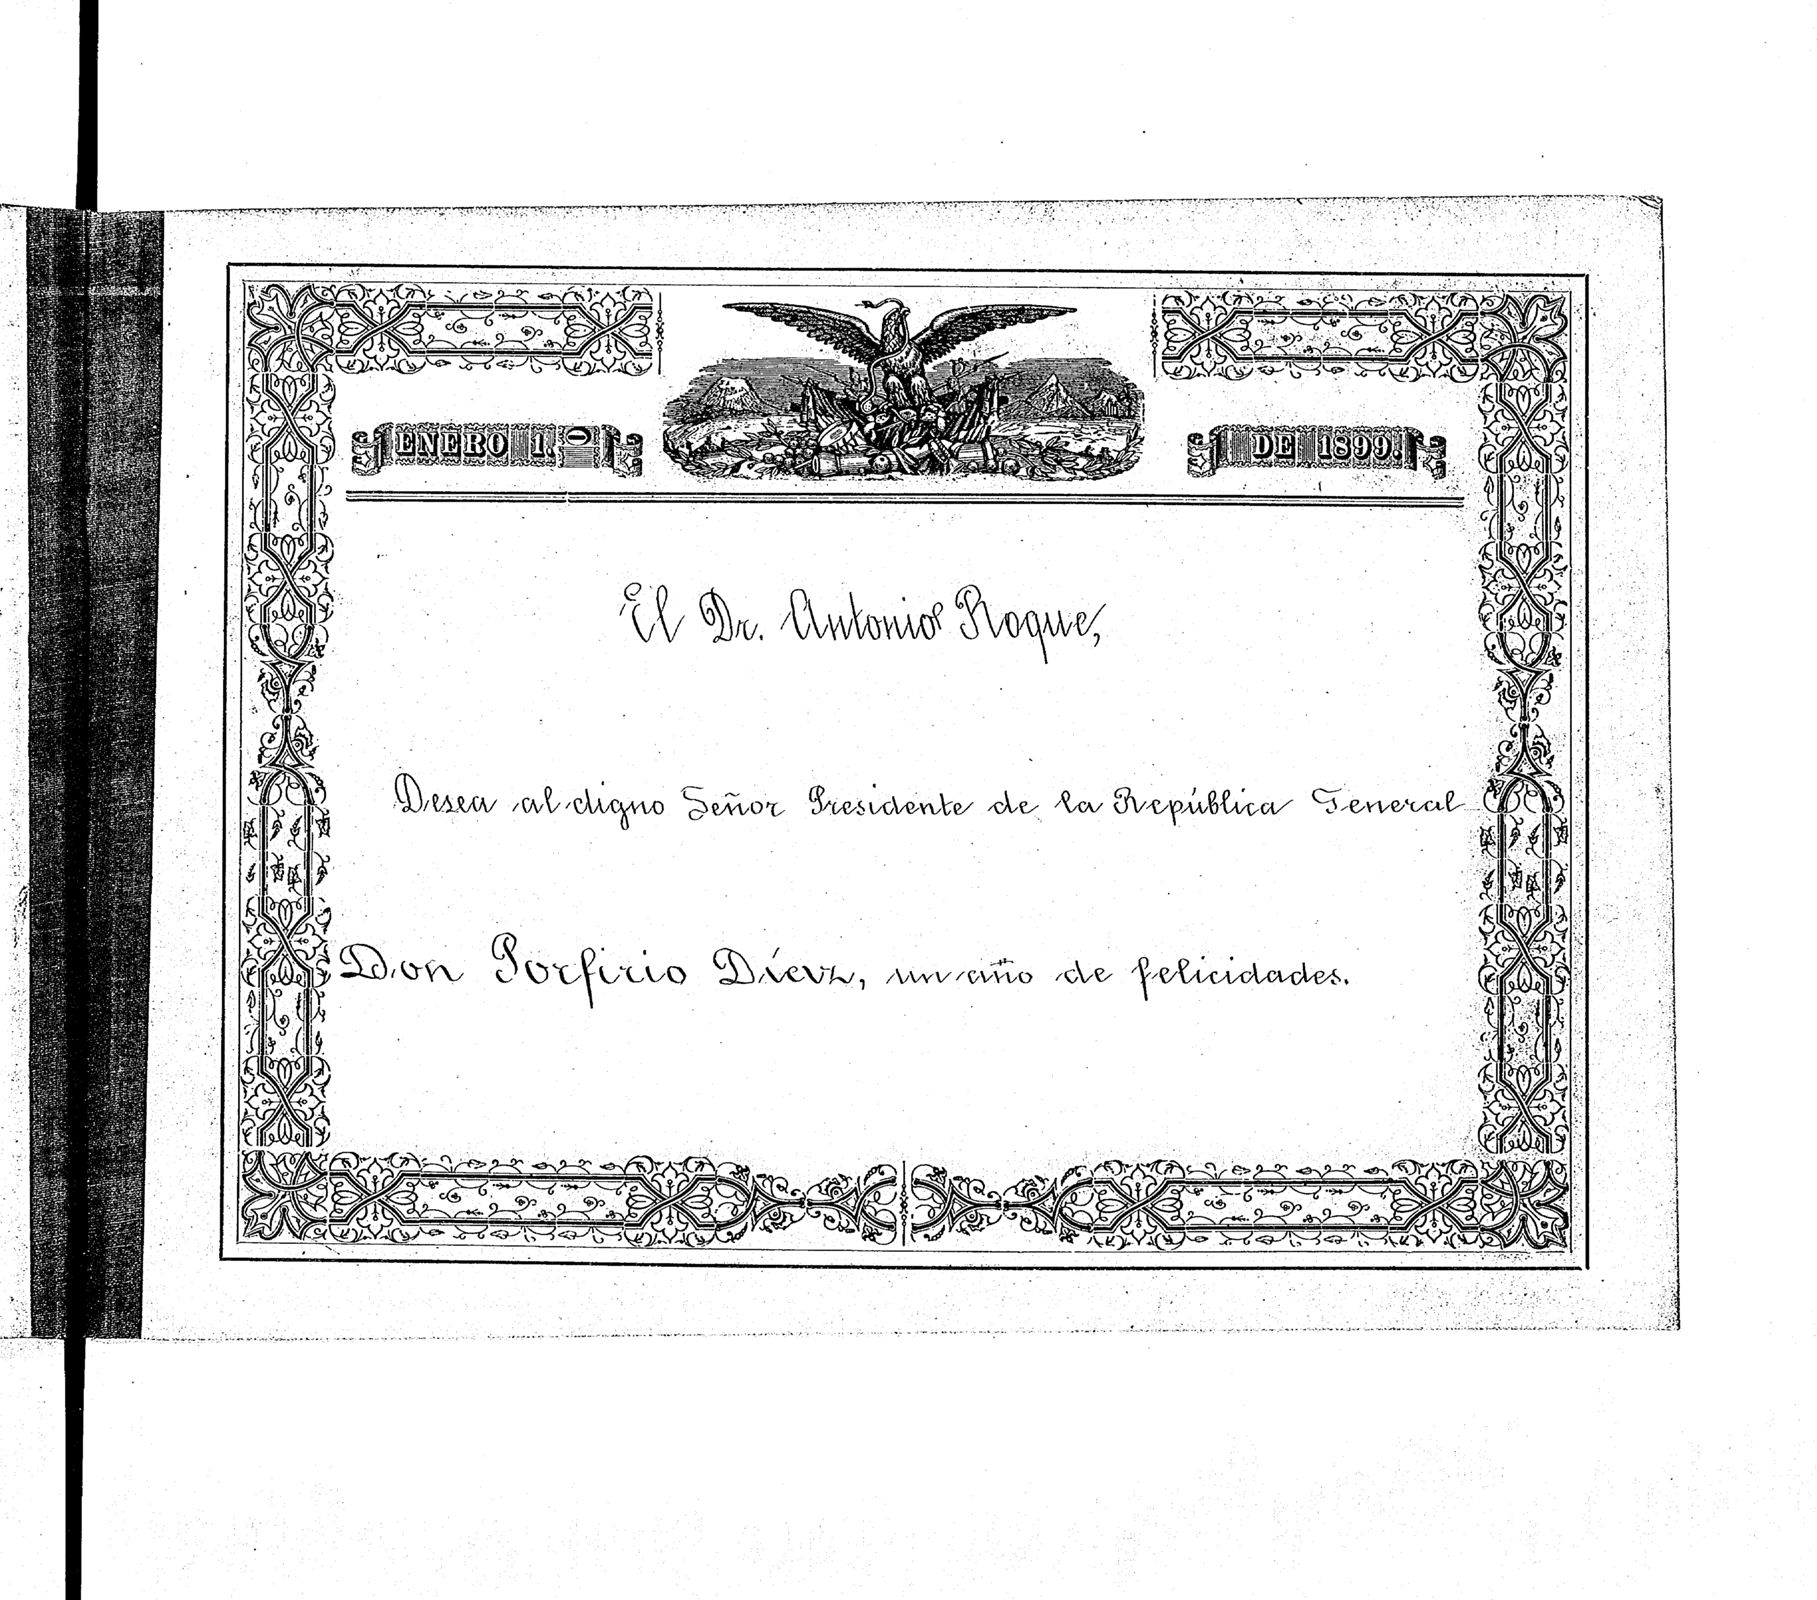 ENERO 1.O DE 1899.
El Dr. Antonio Roque,
Desea al digno Señor Presidente de la República General
Don Porfirio Díaz, un año de felicidades.